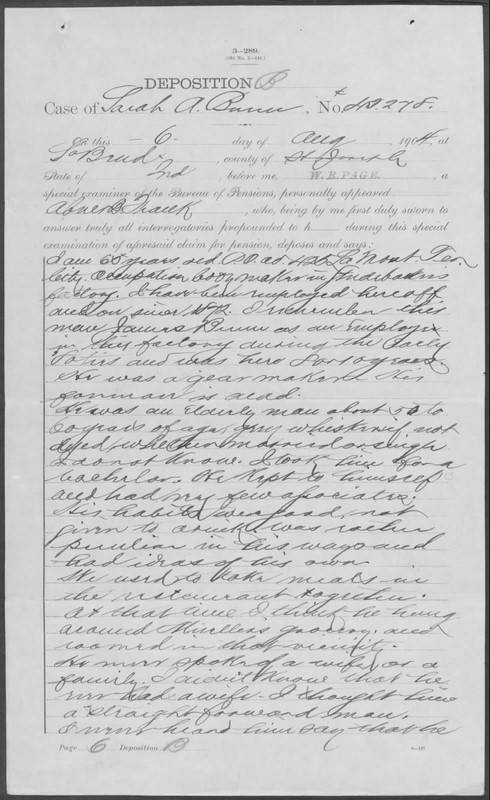 3—289.
DEPOSITION B
Case of Sarah A. Bunn, No. 42.278.
On this 6 day of Aug, 1904, at
So Bend, county of St Joseph
State of Ind, before me, W. R. PAGE, a
special examiner of the Bureau of Pensions, personally appeared
Abner, who, being by me first duly sworn to
answer truly all interrogatories propounded to h during this special
examination of aforesaid claim for pension, deposes and says:
I am 68 years old. P.O. ad. 426 La Mont Ter.
City. Occupation body maker in Studebakers
factory. I have been employed here off
and on since. I remember this
man James Bunn as an Employe
in this factory during the early
and was here 8 or 10 years.
He was a gear maker. His
foreman is dead.
He was an Elderly man about 50 to
60 years of age gray whiskers, not
dyed, whether married or single
I do not know. I took him for a
bachelor. He kept to himself
and had very few associates.
His habits were good, not
given to drink, was rather
peculiar in his ways and
had ideas of his own
We used to take meals in
the restaurant together.
At that time I think he hung
around Millers grocery, and
roomed in that vicinity.
He never spoke of a wife, or a
family. I didnt know that he
ever had a wife. I thought him
a straight forward man.
I never heard him say that he
Page 6 Deposition B